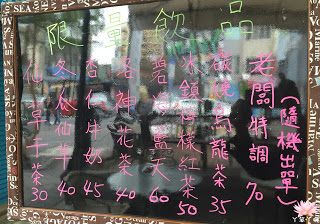 限量飲品
老闆特調 70
(隨機出單)
烏龍茶 35
冰鎮檸檬紅茶 50
藍天 60
洛神花茶 40
杏仁牛奶 45
冬瓜仙草 40
仙草茶 30